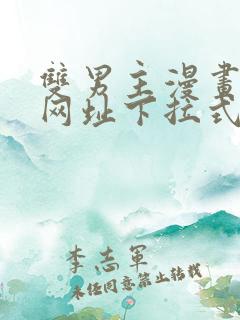 雙男主漫畫
网址下拉式
李志軍
未经同意禁止转载